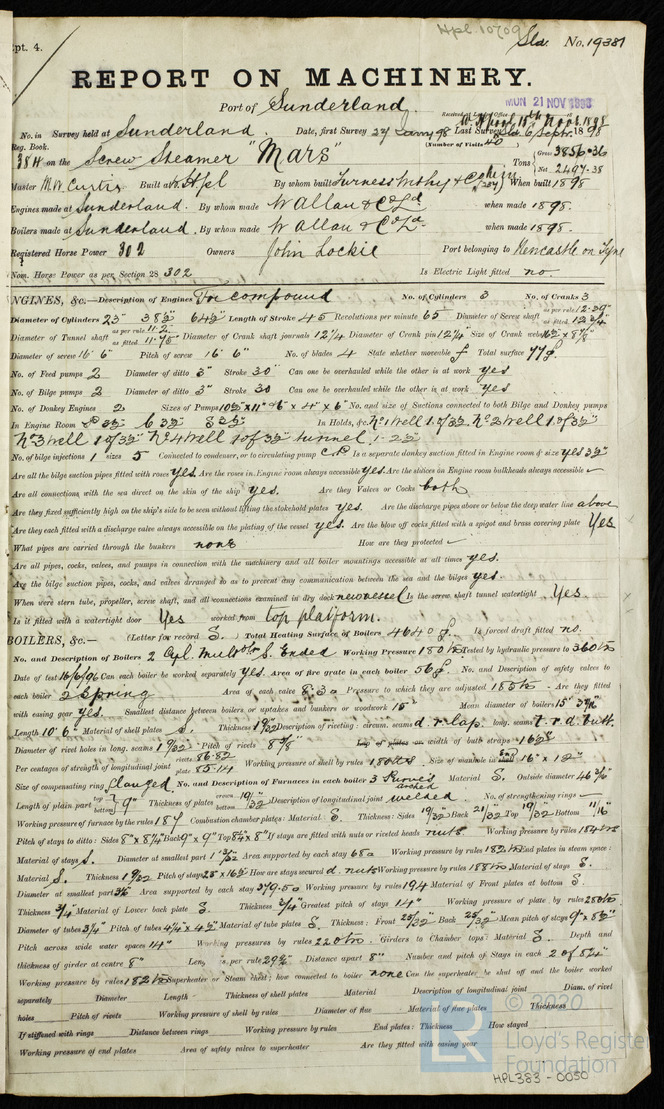 Rpt. 4.
Hpl 10709
Sld. No. 19387
REPORT ON MACHINERY.
Port of Sunderland
Received at London Office MON 21 NOV 1898
No. in Survey held at Sunderland. Date, first Survey 24 Jany 98 Last Survey Sld. 6 Sept. 1898
Reg. Book. (Number of Visits 40
384 on the Screw Steamer "Mars" Tons Gross 3856.36 Net 2497.38
Master M.W. Curtis Built at W. Hpl By whom built Furness Withy & Co When built 1898
Engines made at Sunderland. By whom made W Allan & Co Ld when made 1898.
Boilers made at Sunderland. By whom made W Allan & Co Ld when made 1898.
Registered Horse Power 302 Owners John Lockie Port belonging to Newcastle on Tyne
Nom. Horse Power as per Section 28 302 Is Electric Light fitted no.
ENGINES, &c.—Description of Engines Tri compound No. of Cylinders 3 No. of Cranks 3
Diameter of Cylinders 23" 38½" 64½" Length of Stroke 45 Revolutions per minute 65 Diameter of Screw shaft as per rule as fitted 12¾"
Diameter of Tunnel shaft as per rule 11.2 as fitted 11.75" Diameter of Crank shaft journals 12¼ Diameter of Crank pin 12¼" Size of Crank webs
Diameter of screw 16' 6" Pitch of screw 16' 6" No. of blades 4 State whether moveable f Total surface 77 f
No. of Feed pumps 2 Diameter of ditto 3" Stroke 30 Can one be overhauled while the other is at work yes
No. of Bilge pumps 2 Diameter of ditto 3" Stroke 30 Can one be overhauled while the other is at work yes
No. of Donkey Engines 2 Sizes of Pumps No. and size of Suctions connected to both Bilge and Donkey pumps
In Engine Room In Holds, &c. No 1 Well 1 of 3½ No 2 Well 1 of 3½"
No 3 Well 1 of 3½" No 4 Well 1 of 3½" tunnel 1 - 2½
No. of bilge injections 1 sizes 5 Connected to condenser, or to circulating pump C.P. Is a separate donkey suction fitted in Engine room & size yes 3½"
Are all the bilge suction pipes fitted with roses yes. Are the roses in Engine room always accessible yes. Are the sluices on Engine room bulkheads always accessible
Are all connections with the sea direct on the skin of the ship yes. Are they Valves or Cocks both
Are they fixed sufficiently high on the ship's side to be seen without lifting the stokehold plates yes. Are the discharge pipes above or below the deep water line above
Are they each fitted with a discharge valve always accessible on the plating of the vessel yes. Are the blow off cocks fitted with a spigot and brass covering plate Yes
What pipes are carried through the bunkers none How are they protected
Are all pipes, cocks, valves, and pumps in connection with the machinery and all boiler mountings accessible at all times yes.
Are the bilge suction pipes, cocks, and valves arranged so as to prevent any communication between the sea and the bilges yes.
When were stern tube, propeller, screw shaft, and all connections examined in dry dock new vessel Is the screw shaft tunnel watertight Yes.
Is it fitted with a watertight door Yes worked from top platform.
BOILERS, &c.— (Letter for record S.) Total Heating Surface of Boilers 4640 f. Is forced draft fitted no.
No. and Description of Boilers 2 Cyl. Multr S. Ended Working Pressure 180 lbs Tested by hydraulic pressure to 360 lbs
Date of test 16/6/96 Can each boiler be worked separately yes. Area of fire grate in each boiler 56 f. No. and Description of safety valves to
each boiler 2 Spring Area of each valve 8.30 Pressure to which they are adjusted 185 lbs Are they fitted
with easing gear yes. Smallest distance between boilers or uptakes and bunkers or woodwork 15" Mean diameter of boilers
Length 10' 6" Material of shell plates S. Thickness 19/32 Description of riveting: circum. seams d. r. lap. long. seams t. r. d. butt.
Diameter of rivet holes in long. seams 1 9/32" Pitch of rivets 8 7/8" Lap of plates or width of butt straps
Per centages of strength of longitudinal joint rivets 86.82 plate 85.14 Working pressure of shell by rules 180 lbs Size of manhole in shell 16" x 12"
Size of compensating ring flanged No. and Description of Furnaces in each boiler 3 Purves arched Material S. Outside diameter
Length of plain part top bottom 9" Thickness of plates crown bottom 19/32 Description of longitudinal joint welded No. of strengthening rings
Working pressure of furnace by the rules 187 Combustion chamber plates: Material S. Thickness: Sides 19/32 Back 21/32 Top 19/32 Bottom 11/16"
Pitch of stays to ditto: Sides 8" x 8¼" Back 9" x 9" Top 8½ x 8" If stays are fitted with nuts or riveted heads nuts Working pressure by rules 184 lbs
Material of stays S. Diameter at smallest part Area supported by each stay 68 Working pressure by rules 182 lbs End plates in steam space:
Material S. Thickness Pitch of stays How are stays secured d. nuts Working pressure by rules 188 lbs Material of stays S.
Diameter at smallest part Area supported by each stay 379.50 Working pressure by rules 194 Material of Front plates at bottom S.
Thickness ¾" Material of Lower back plate S. Thickness ¾" Greatest pitch of stays 14" Working pressure of plate by rules
Diameter of tubes 3¼" Pitch of tubes 4¼" x 4½" Material of tube plates S. Thickness: Front 25/32" Back 25/32" Mean pitch of stays 9" x 8½"
Pitch across wide water spaces 14" Working pressures by rules 220 lbs. Girders to Chamber tops: Material S. Depth and
thickness of girder at centre 8" Length as per rule 29½" Distance apart 8" Number and pitch of Stays in each
Working pressure by rules 182 lbs Superheater or Steam chest; how connected to boiler none Can the superheater be shut off and the boiler worked
separately Diameter Length Thickness of shell plates Material Description of longitudinal joint Diam. of rivet
holes Pitch of rivets Working pressure of shell by rules Diameter of flue Material of flue plates Thickness
If stiffened with rings Distance between rings Working pressure by rules End plates: Thickness How stayed
Working pressure of end plates Area of safety valves to superheater Are they fitted with easing gear
© 2020
Lloyd's Register
Foundation
HPL383-0050